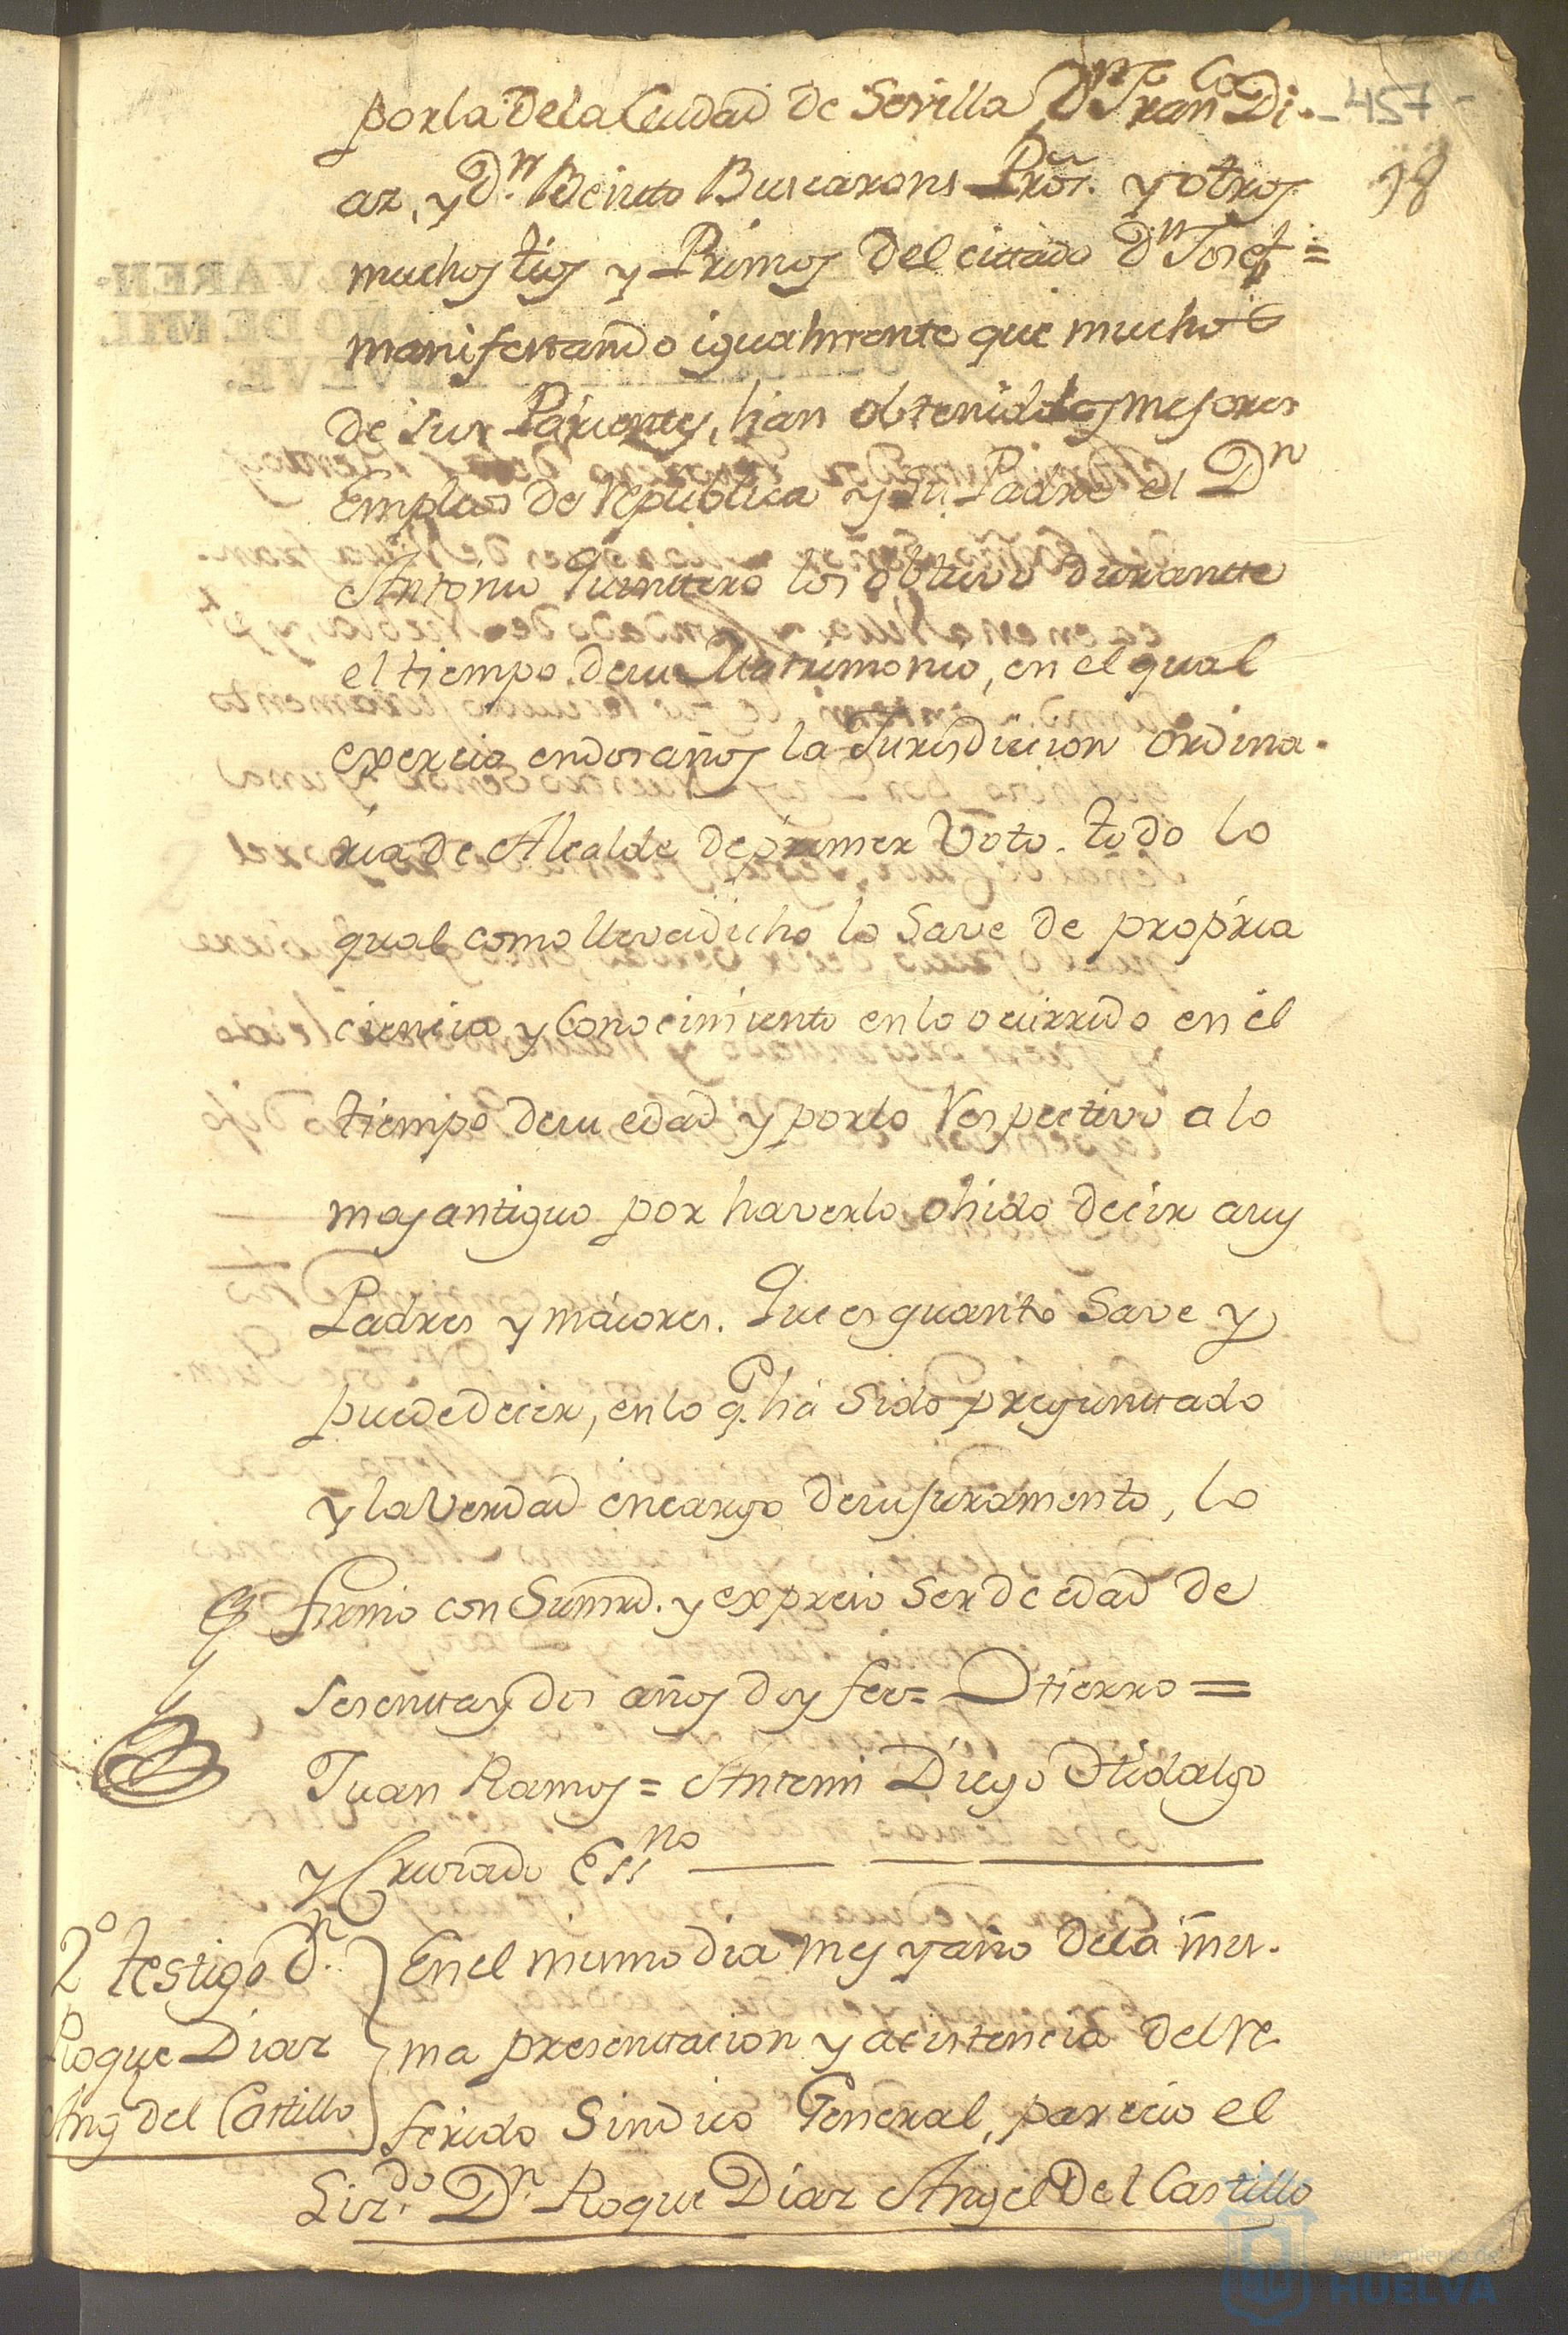 por la de la Ciudad de Sevilla Dn. Franco. Di- -457-
az, y Dn. Benito Buscarons Pros. y otros 98
muchos tios y Primos del cittado Dn Josef =
manifestando igualmente que muchos
de sus Parientes, han obtenido los mejores
Empleos de Republica y su Padre el Dn
Antonio Quintero los obtuvo durante
el tiempo de su Matrimonio, en el qual
exercio en dos años la Jurisdiccion ordina-
ria de Alcalde de primer Voto. todo lo
qual como lleva dicho lo Save de propria
ciencia y Conocimiento en lo ocurrido en el
tiempo de su edad y por lo Respectivo a lo
mas antiguo por haverlo ohido decir a sus
Padres y maiores. Que es quanto Save y
puede decir, en lo q. ha sido preguntado
y la Verdad en cargo de su juramento, lo
firmo con Sumrd. y expreso ser de edad de
sesenta y dos años doy fee = Hierro =
Juan Ramos = Antemi Diego Hidalgo
y Cruzado Essno
2º testigo Dn.
Roque Diaz
Ang del Castillo
En el mismo dia mes y año de la mis-
ma presentacion y acistencia del re-
ferido Sindico General, parecio el
Lizdo. Dn. Roque Diaz Angel Del Castillo
Ayuntamiento de
HUELVA